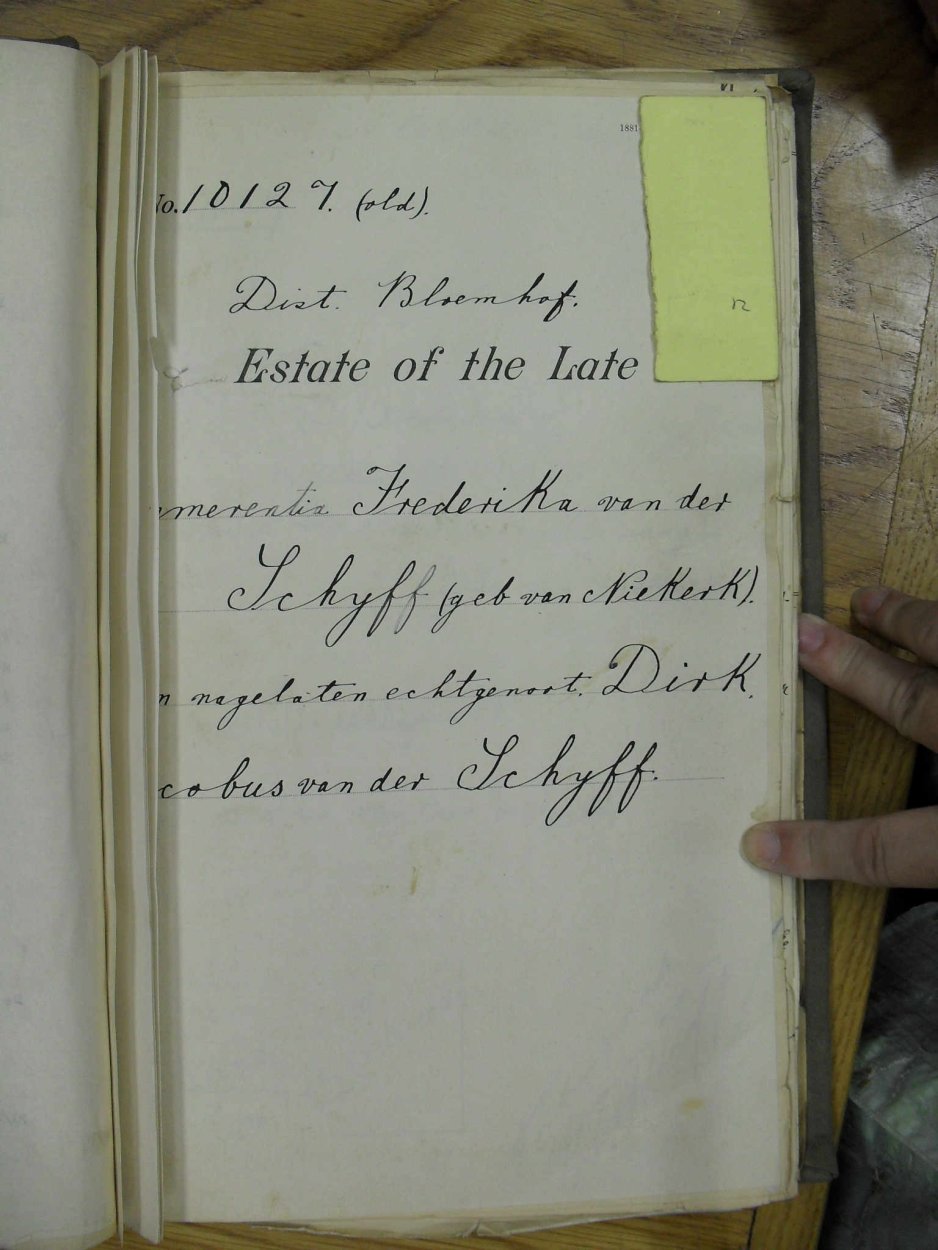 1881
No. 10127. (old).
Dist. Bloemhof.
Estate of the Late
merentia Frederika van der
Schyff (geb van Niekerk).
n nagelaten echtgenoot. Dirk
cobus van der Schyff.